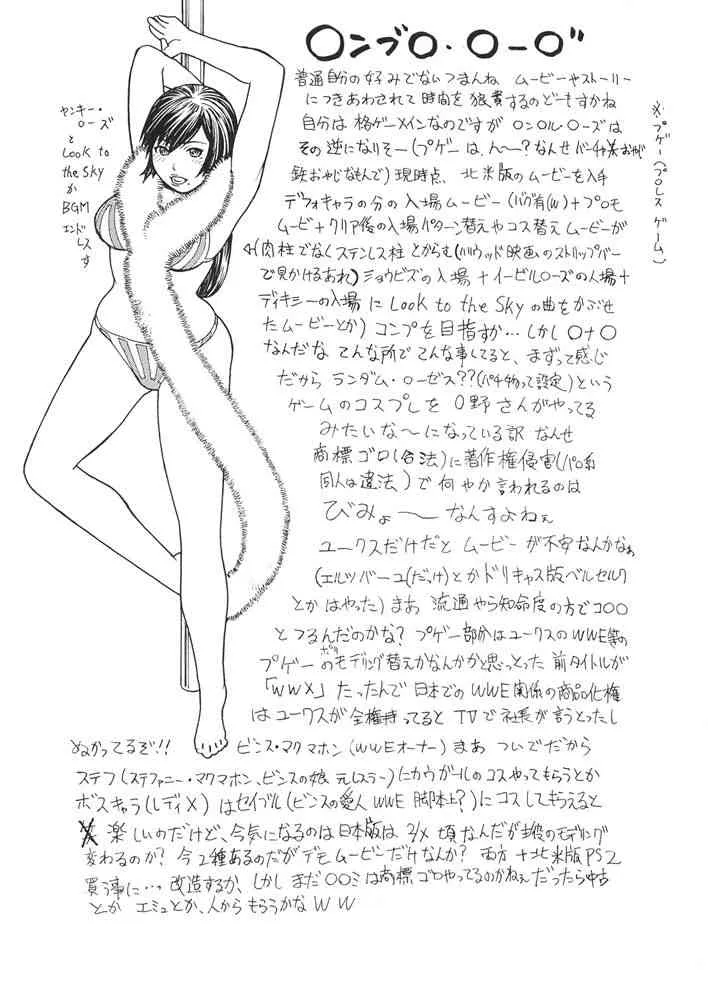 〇ンブ〇・〇ー〇"
普通自分の好みでないつまんね ムービーやストーリー
につきあわされて時間を浪費するのどーもすかね
自分は格ゲーメインなのですが〇ン〇ル・〇ーズは
その逆になりそー(プゲーは、ん〜?なんせバーチャ美おやじ
鉄おやじなもんで)現時点、北米版のムービーを入手
デフォキャラの分の入場ムービー(バグ有(W)+プロモ
ムービ+クリア後の入場パターン替えやコス替えムービーが
(肉柱でなくステンレス柱とからむ(ハリウッド映画のストリップバー
で見かけるあれ)ショウビズの入場+イービルローズの入場+
ディキシーの入場にLook to the Skyの曲をかぶせ
たムービーとか)コンプを目指すか…しかし〇ナ〇
なんだな てんな所でてんな事してると、まずって感じ
だから ランダム・〇ーゼス??(パチ物って設定)という
ゲームのコスプレを 〇野さんがやってる
みたいな〜になっている訳 なんせ
商標ゴロ(合法)に著作権侵害(パロ系
同人は違法)で何やか言われるのは
びみょ〜〜なんすよねぇ
ユークスだけだと ムービーが不安なんかなぁ
(エルツバーユ(だっけ)とかドリキャス版ベルセルク
とかはやった)まあ 流通やら知命度の方でコ〇〇
とつるんだのかな? プゲー部分はユークスのWWE等の
プゲーのポリモデリング替えかなんかと思っとった 前タイトルが
「WWX」たったんで日本でのWWE関係の商品化権
はユークスが全権持ってると TVで社長が言うとったし
ぬかってるぞ!! ビンス・マクマホン(WWEオーナー)まあ ついでだから
ステフ(ステファニー・マクマホン、ビンスの娘 元レスラー)にカウガールのコスやってもらうとか
ボスキャラ(レディX)はセイブル(ビンスの愛人 WWE 脚本上?)にコスしてもらえると
楽しいのだけど、今気になるのは日本版は2/X頃なんだが主役のモデリング
変わるのか? 今2種あるのだがデモムービーだけなんか? 両方+北米版PS2
買う事に… 改造するか、しかしまだ〇〇ミは商標ゴロやってるのかねぇだったら中古
とか エミュとか、人からもらうかなWW
※プゲー(プロレスゲーム)
ヤンキー・
ローズ
と
Look to
the Sky
か
BGM
エンド
レス
す